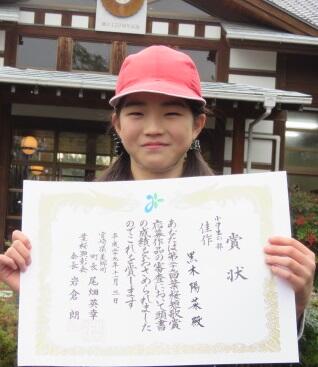 賞状
小学生の部
佳作
黒木 陽 殿
あなたは第 回葉桜短歌賞
応募作品の審査において頭書
の成績をおさめられました
のでこれを賞します
平成二十九年十一月三日
宮崎県美郷町
町長 尾畑英幸
葉桜顕彰会
会長 岩倉 朗